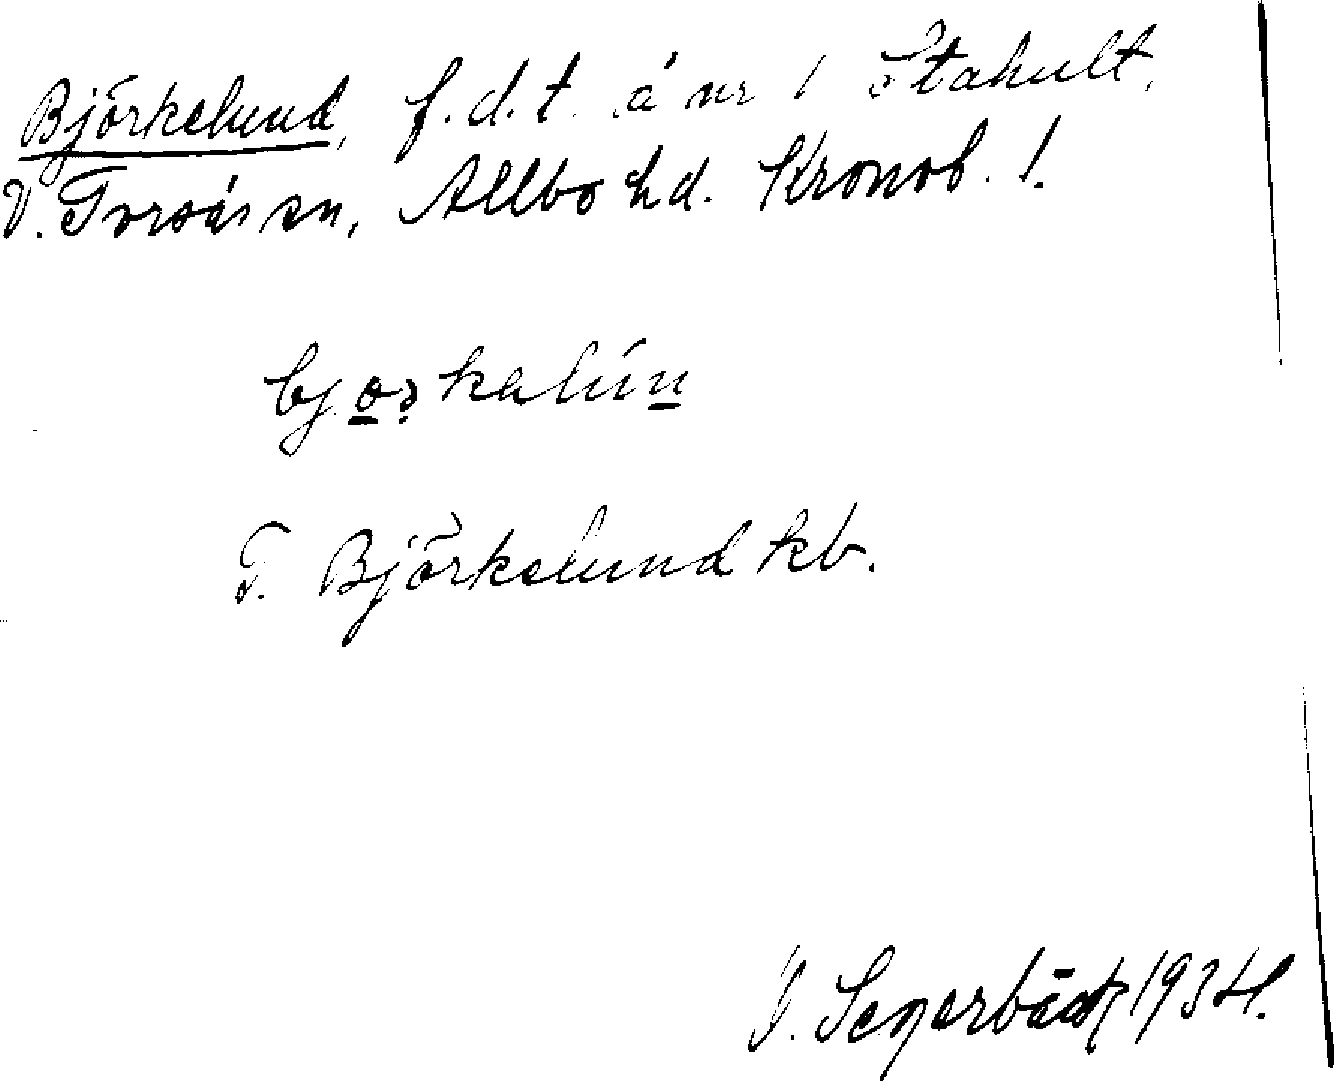 Björkelund, f.d.t. å nr 1 Stakult,
V. Torsås sn, Allbo hd. Kronob. l.
bjørkalún
T. Björkelund kb.
J. Segerbäck 1934.